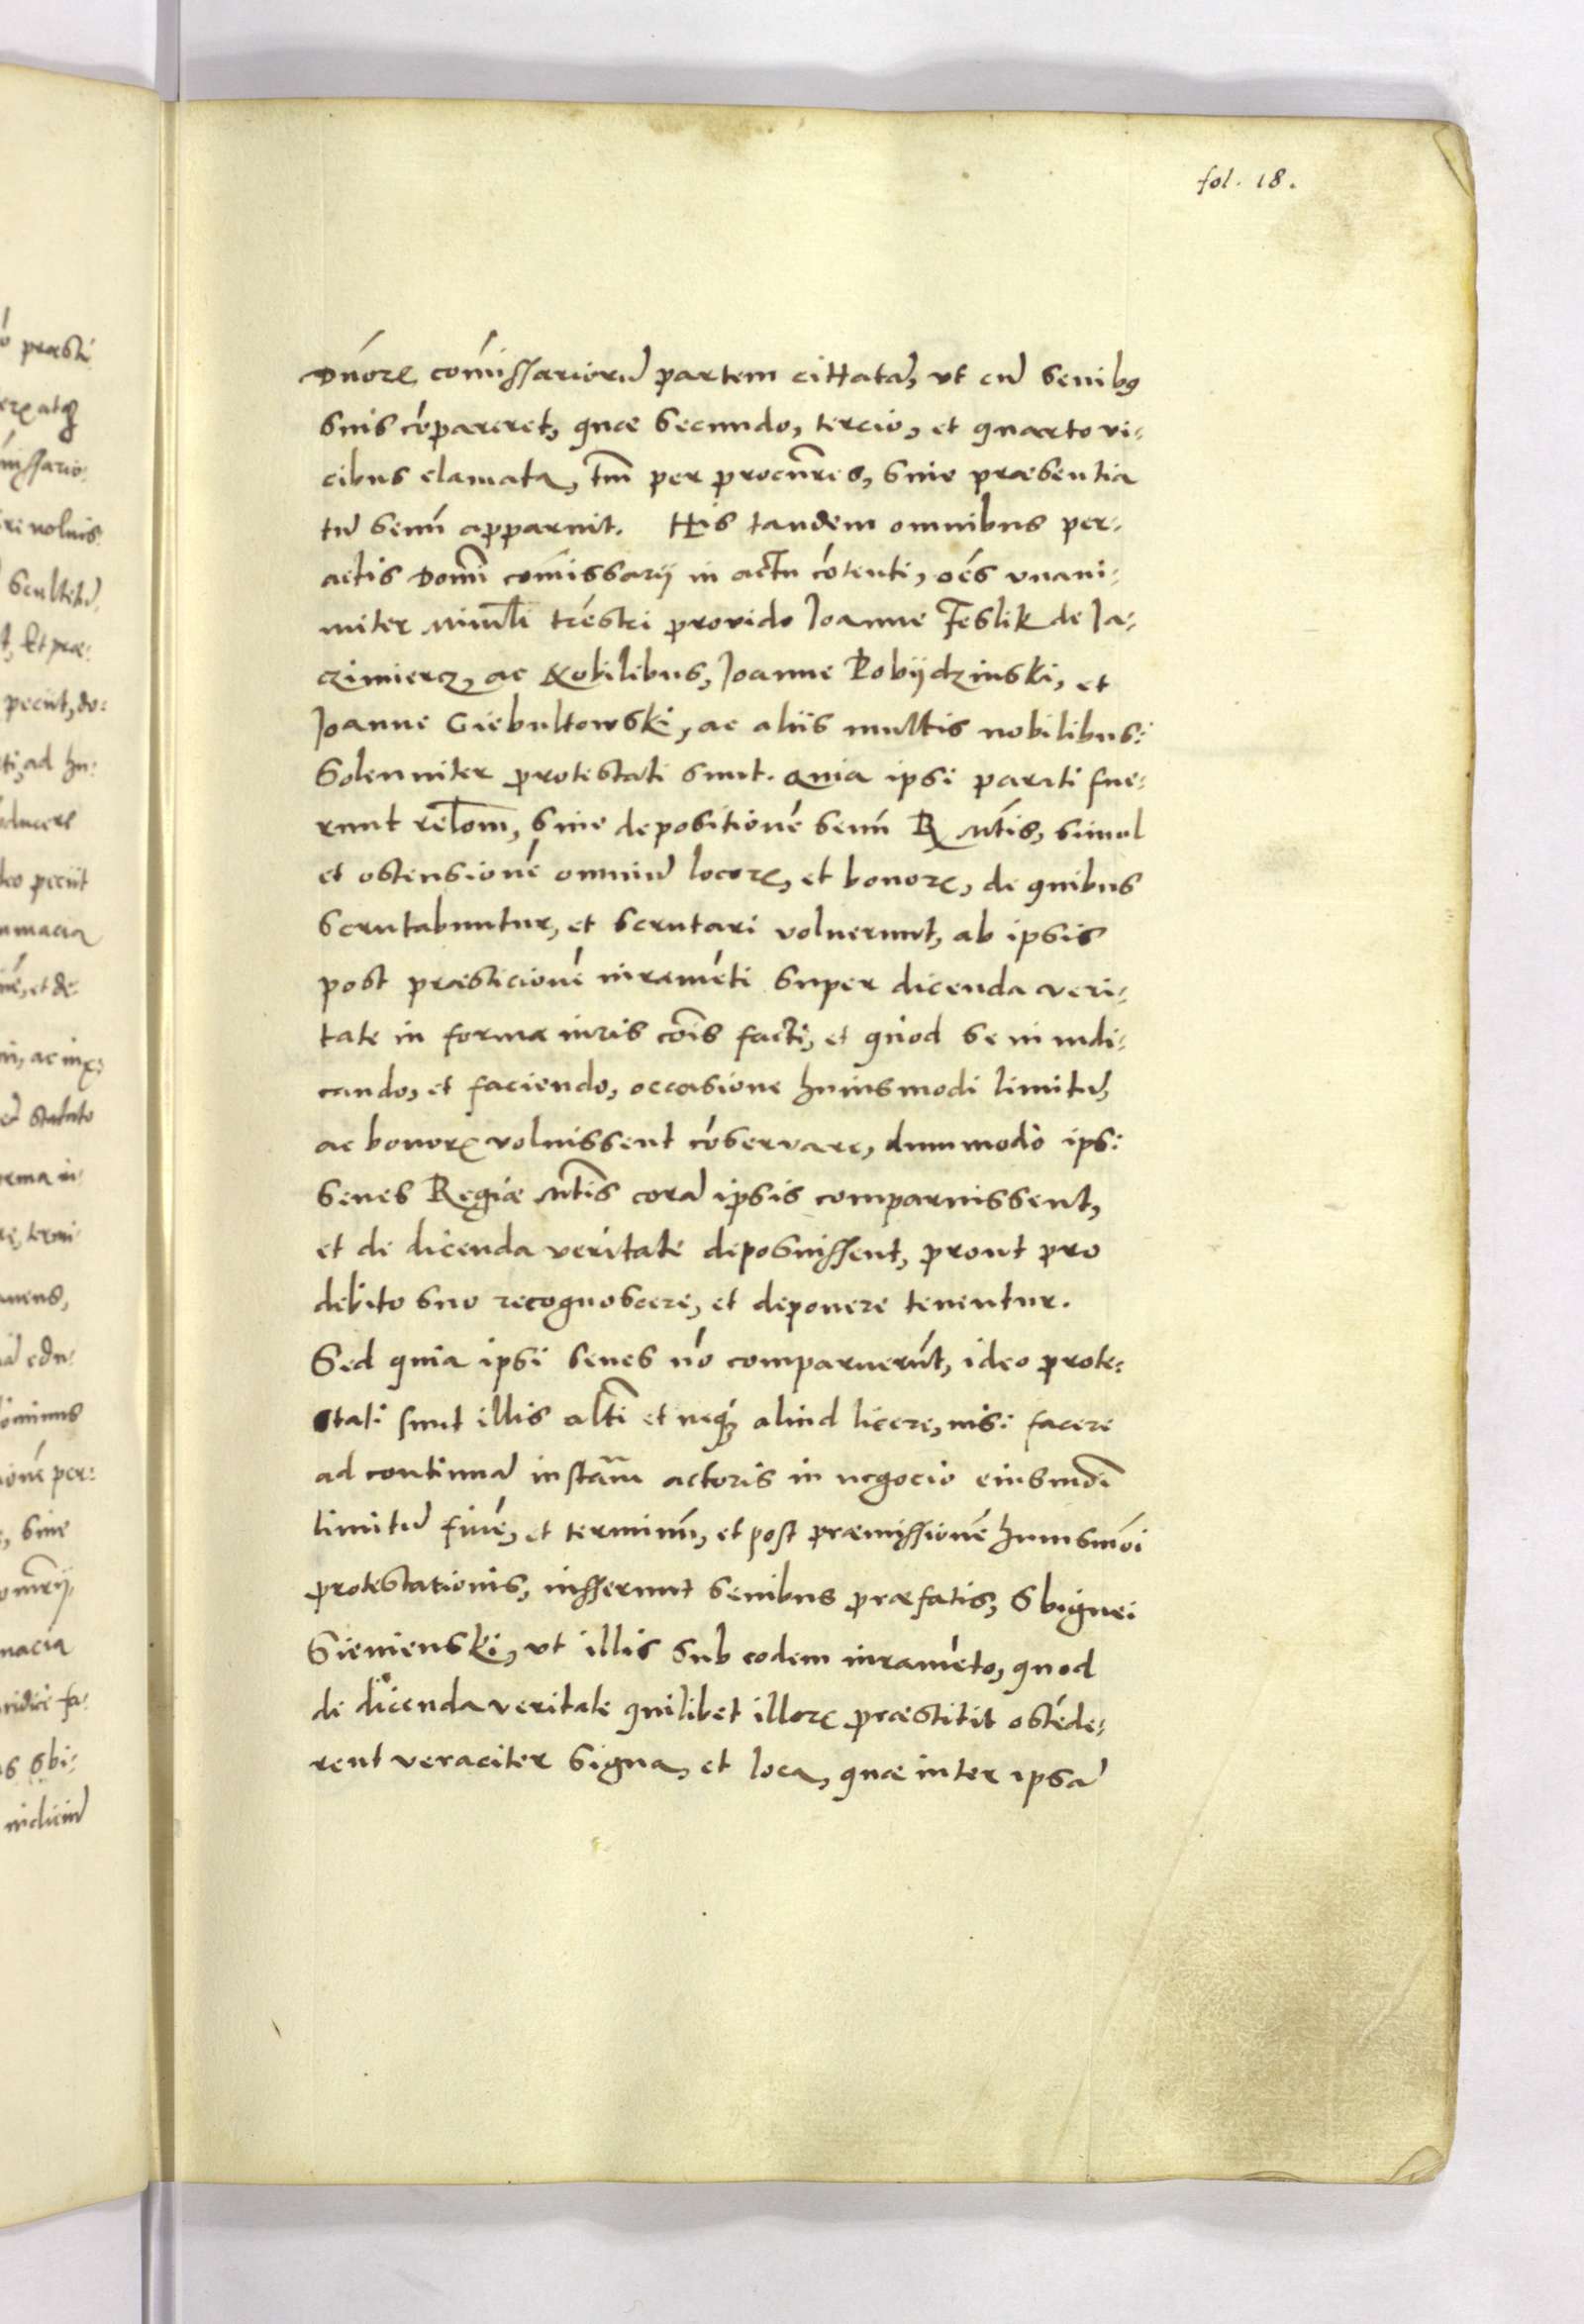 fol. 18.
Dnóрꝝ comissarioru partem cittata, vt cu senibꝰ
suis cópareret, quæ secundo, tercio, et quarto vi-
cibus clamata, tm per procures, sine præsentia
tn senu apparuit. His tandem omnibus per-
actis Domi comissarij in actu cótenti, oés vnani-
miter trestri provido Joanne Feslik de Ja-
czimiercz, ac Nobilibus, Joanne Pobijdzinski, et
Joanne Giebultowski, ac aliis multis nobilibus:
Solenniter protestati sunt. quia ipsi parati fue-
runt relom, sive depositioné senu R Mtis, simul
et ostensioné omniu locoꝝ, et bonoꝝ, de quibus
scrutabuntur, et scrutari voluerunt, ab ipsis
post præsticioné iuraméti super dicenda veri-
tate in forma iuris cois facti, et quod se in iudi-
cando, et faciendo, occasione huiusmodi limitu,
ac bonoꝝ voluissent cóservare, dummodo ipsi
senes Regiæ Mtis cora ipsis comparuissent,
et de dicenda veritate deposuissent, prout pro
debito suo recognoscere, et deponere tenentur.
Sed quia ipsi senes nó comparuerút, ideo prote-
stati sunt illis alti et neqꝫ aliud licere, nisi facere
ad continua instam actoris in negocio eiusmdi
limitu finé, et terminu, et post præmissioné huiusmói
protestationis, iusserunt senibus præfatis, Sbignei
Sienienski, vt illis sub eodem iuraméto, quod
de dicenda veritate quilibet illoꝝ præstitit osténde-
rent veraciter signa, et loca, quæ inter ipsa